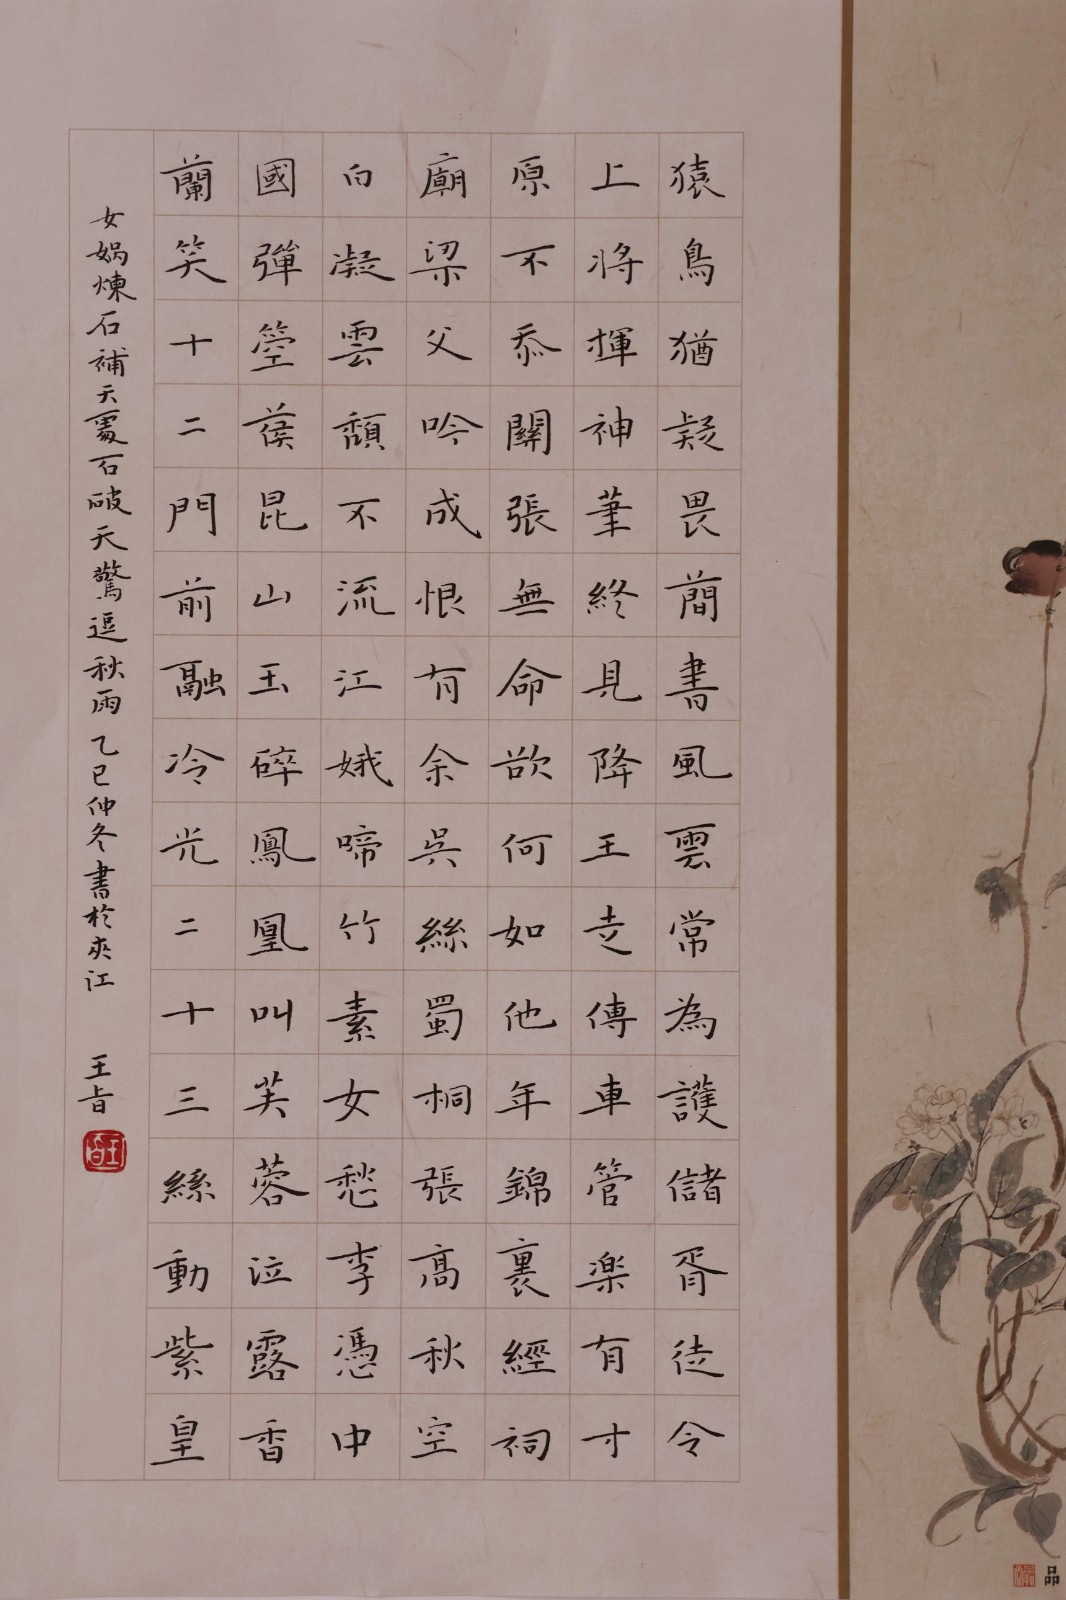 猿鳥猶疑畏簡書風雲常為護儲胥徒令
上將揮神筆終見降王走傳車管楽有才
原不忝關張無命欲何如他年錦裏經祠
廟梁父吟成恨有余吳絲蜀桐張高秋空
白凝雲頹不流江娥啼竹素女愁李憑中
國彈箜篌昆山玉碎鳳凰叫芙蓉泣露香
蘭笑十二門前融冷光二十三絲動紫皇
女媧煉石補天處石破天驚逗秋雨乙巳仲冬書於夾江
王旨
王旨
品